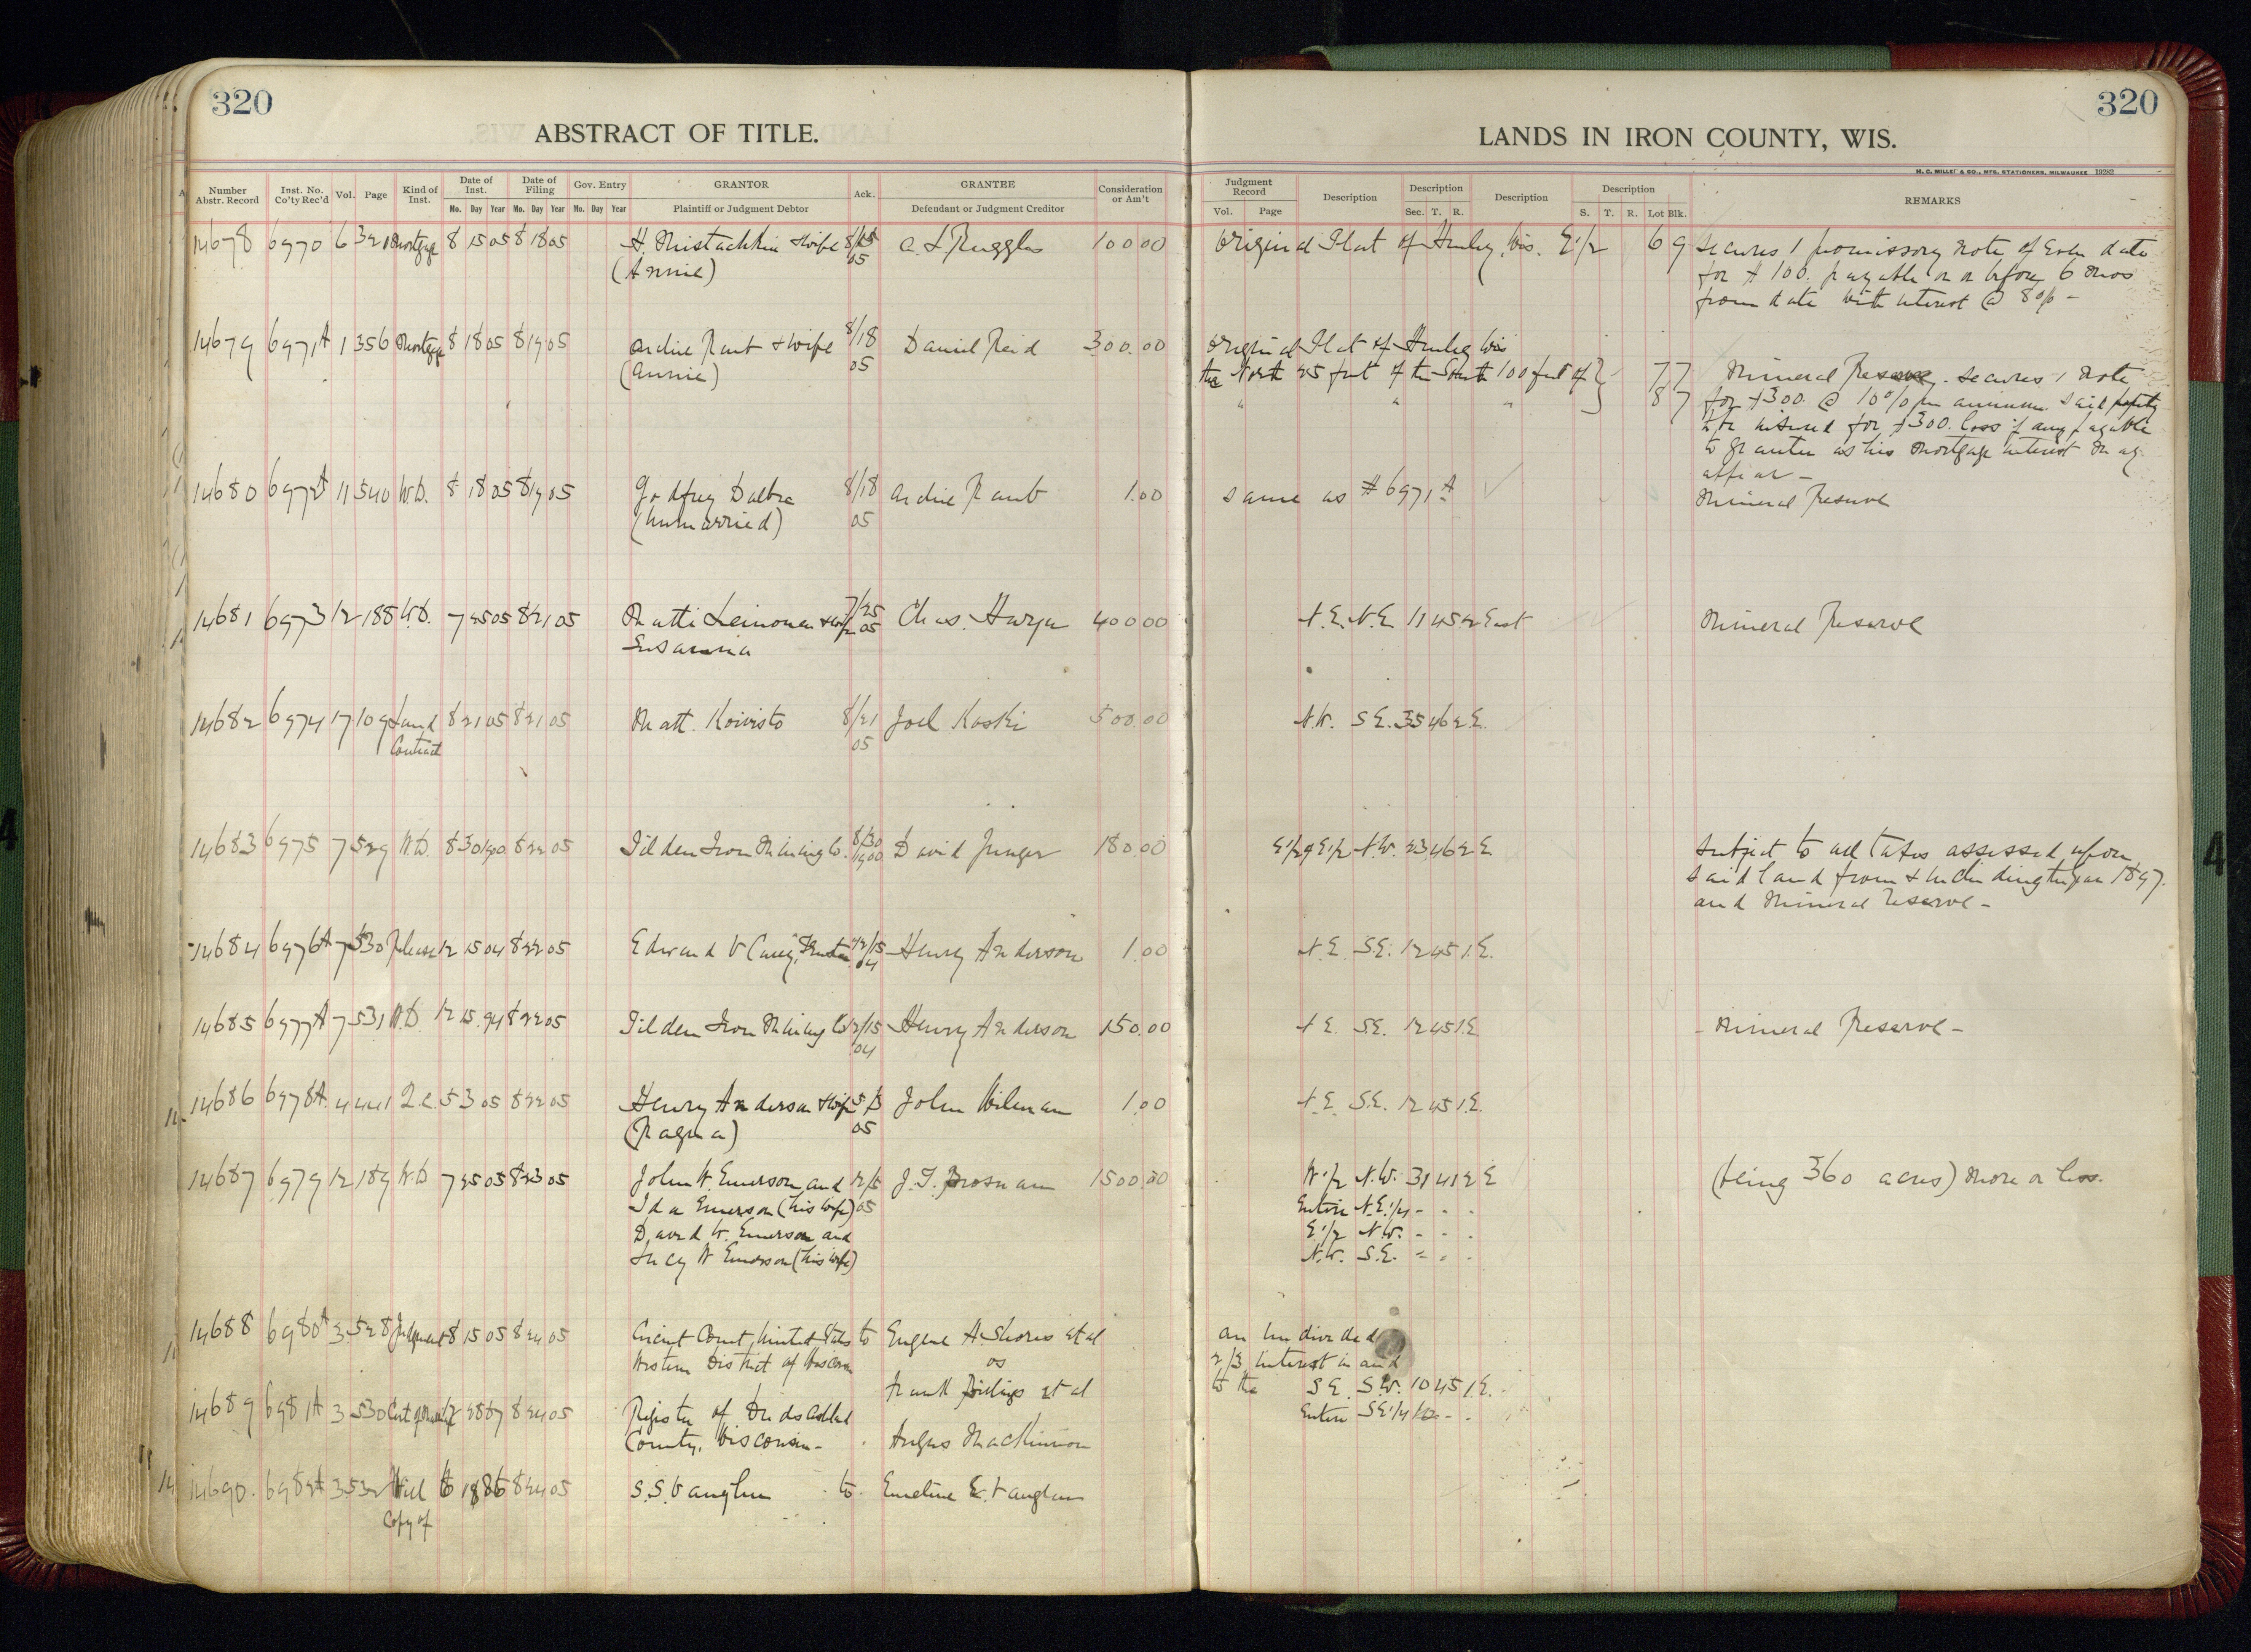 320
ABSTRACT OF TITLE.
Number Abstr. Record Inst. No. Co'ty Rec'd Vol. Page Kind of Inst. Date of Inst. Mo. Day Year Date of Filing Mo. Day Year Gov. Entry Mo. Day Year GRANTOR Plaintiff or Judgment Debtor Ack. GRANTEE Defendant or Judgment Creditor Consideration or Am't
14678 6970 6 321 Mortgage 8 15 05 8 18 05 H. & wife 8/15 Ruggles 100 00
(Annie) 05
14679 6971A 1 356 Mortgage 8 18 05 8 19 05 Archie & wife 8/18 Daniel Reid 300.00
(Annie) 05
14680 6972A 11 540 W.D. 8 18 05 8 19 05 Godfrey 8/18 Archie 1.00
(unmarried) 05
14681 6973 12 188 W.D. 7 25 05 8 21 05 Matti Leinonen & wife 7/25 05 Chas. 400 00
Susanna
14682 6974 17 109 Land 8 21 05 8 21 05 Matt. Koivisto 8/21 Joel Koski 500.00
Contract 05
14683 6975 7 529 W.D. 8 30 1900 8 22 05 Tilden Iron Mining Co. 8/30 1900 David 180.00
14684 6976A 7 530 Release 12 15 04 8 22 05 Edward V Carey, Trustee 12/15 04 Henry Anderson 1.00
14685 6977A 7 531 W.D. 12 15 04 8 22 05 Tilden Iron Mining Co 12/15 Henry Anderson 150.00
04
14686 6978A 4 441 Q.C. 5 3 05 8 22 05 Henry Anderson & wife 5/3 John 1.00
(Ragna) 05
14687 6979 12 189 W.D 7 25 05 8 23 05 John W. Emerson and J. T. Brosnan 1500.00
Ida Emerson (his wife) 05
David W. Emerson and
Lucy W Emerson (his wife)
14688 6980A 3 528 Judgment 8 15 05 8 24 05 Circuit Court, United States to Eugene A. Shores et al
Western District of Wisconsin vs
Frank et al
14689 6981A 3 530 8 24 05 Register of Deeds Ashland
County, Wisconsin - Angus MacKinnon
14690. 6982A 3 532 Will 8 24 05 S. S. Vaughn to Emeline E. Vaughn
Copy of
320
LANDS IN IRON COUNTY, WIS.
H. C. MILLER & CO., MFG. STATIONERS, MILWAUKEE 19282
Judgment Record Vol. Page Description Description Sec. T. R. Description Description S. T. R. Lot Blk. REMARKS
Original Plat of Hurley, Wis. E 1/2 6 9 Secures 1 promissory note of even date
for $100. payable on or before 6 mos
from date with interest @ 8% -
Original Plat of Hurley Wis
the North 25 feet of the South 100 feet of } 7 7 Mineral Reserve. Secures 1 note
" " " 8 7 for $300. @ 10% per annum. Said
to be insured for $300. loss if any payable
to grantee as his mortgage interest may
appear -
same as # 6971A Mineral Reserve
N.E. N.E. 11 45 2 East Mineral Reserve
N.W. S.E. 35 46 2 E.
E 1/2 of E 1/2 N.W. 23 46 2 E. Subject to all taxes assessed upon
said land from & including the year 1897.
and Mineral Reserve -
N.E. S.E. 12 45 1 E.
N.E. S.E. 12 45 1 E. - Mineral Reserve -
N.E. S.E. 12 45 1 E.
W 1/2 N.W. 31 41 2 E (being 360 acres) more or less.
Entire N.E. 1/4 - - -
E 1/2 N.W. - - -
N.W. S.E. - - -
an undivided
2/3 interest in and
to the S.E. S.W. 10 45 1 E.
Entire S.E. 1/4 10 - -